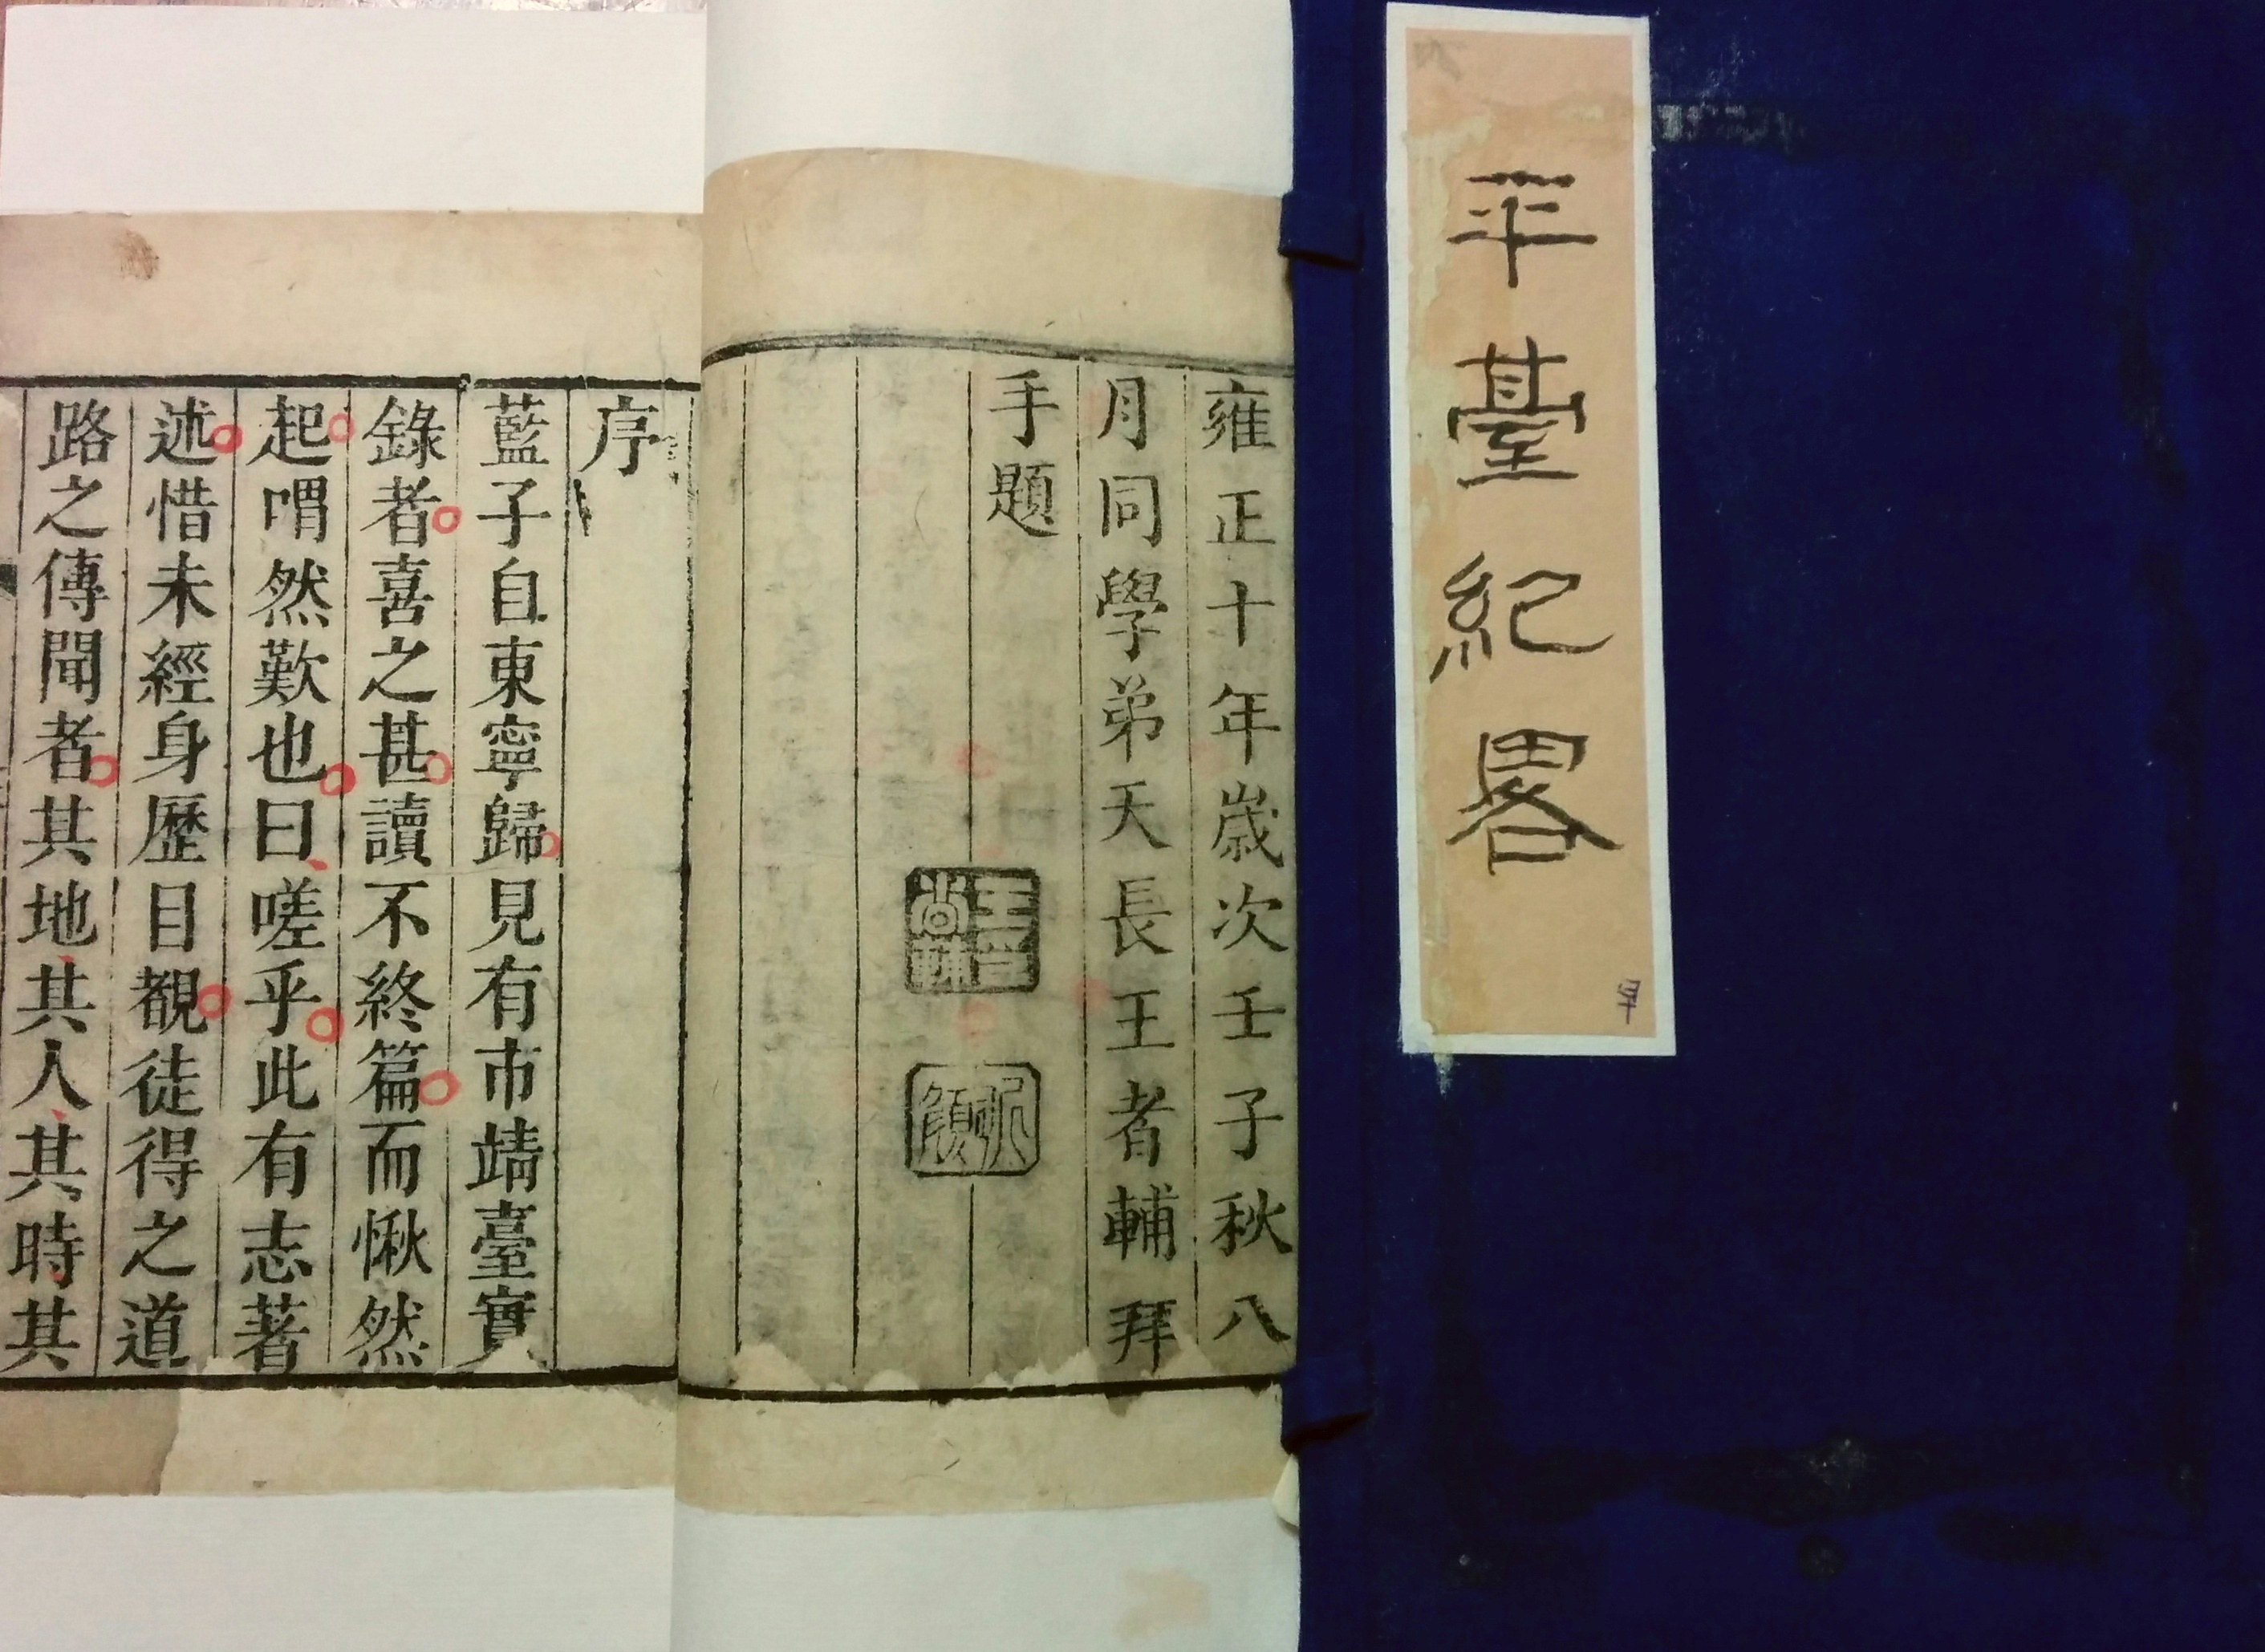 平臺紀畧
雍正十年歲次壬子秋八
月同學弟天長王者輔拜
手題
序
藍子自東寧歸見有市靖臺實
錄者喜之甚讀不終篇而愀然
起喟然歎也曰嗟乎此有志著
述惜未經身歷目覩徒得之道
路之傳聞者其地其人其時其